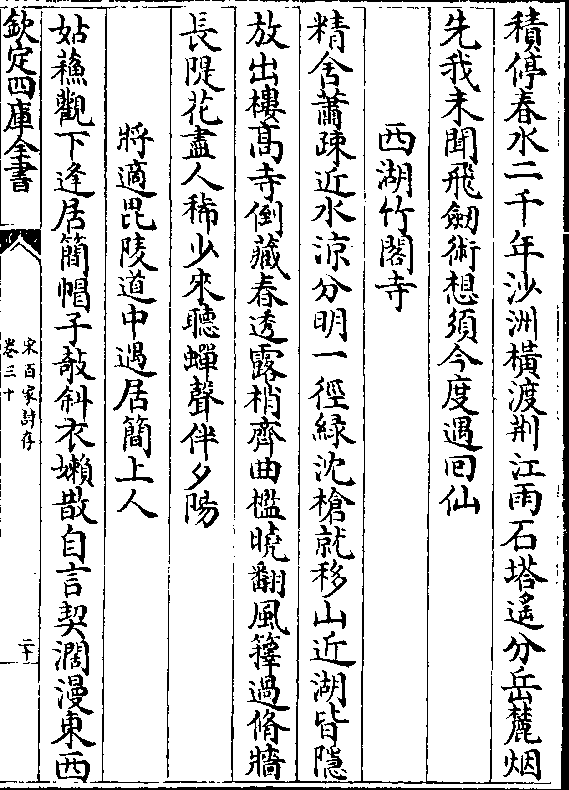 積停春水二千年沙洲橫渡荆江雨石塔遙分岳麓烟
先我未聞飛劒術想須今度遇回仙
西湖竹閣寺
精舍蕭疎近水涼分明一徑緑沈槍就移山近湖皆隱
放出樓髙寺倒藏春透露梢齊曲檻曉翻風籜過脩牆
長隄花盡人稀少來聽蟬聲伴夕陽
將適毘陵道中遇居簡上人
姑蘓觀下逢居簡帽子敧斜衣嬾散自言契濶漫東西
欽定四庫全書
宋百家詩存
卷三十
二十